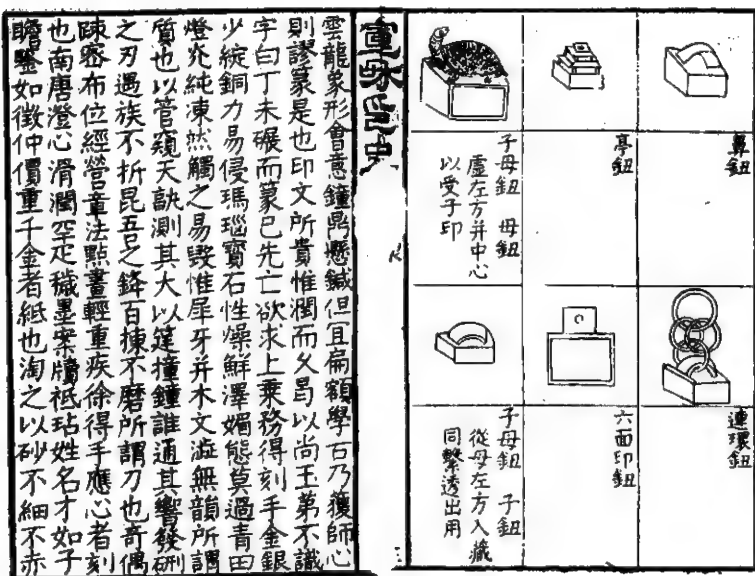 鼻鈕
亭鈕
子母鈕 母鈕
虛左方并中心
以受子印
連環鈕
六面印鈕
子母鈕 子鈕
從母左方入藏
同繫透出用
宣和印史
雲龍象形會意鐘鼎懸鍼但宜扁額學古乃獲師心
則謬篆是也印文所貴惟潤而久曷以尚玉第不識
字白丁未碾而篆已先亡欲求上乗務得刻手金銀
少綻銅力易侵瑪瑙寶石性燥鮮澤媚態莫過青田
燈光純凍然觸之易毀惟犀牙并木文澁無韻所謂
質也以管窺天訣測其大以筳撞鐘誰通其響發硎
之刃遇族不折昆吾之鋒百揀不磨所謂刀也奇偶
踈密布位經營章法點畫輕重疾徐得手應心者刻
也南唐澄心滑潤罕疋穢墨案牘祗玷姓名才如子
瞻鑒如徵仲價重千金者紙也淘之以砂不細不赤